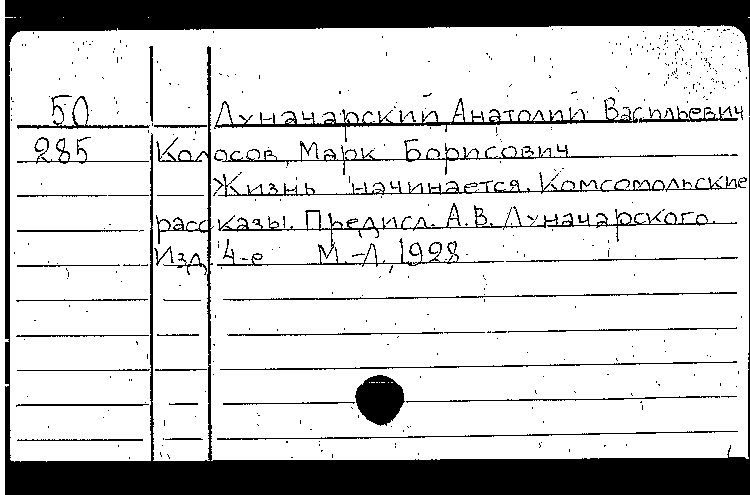 50 Луначарский Анатолий Васильевич
285 Колосов Марк Борисович
Жизнь начинается. Комсомольские
рассказы. Предисл. А.В. Луначарского.
Изд. 4-е М.-Л., 1928